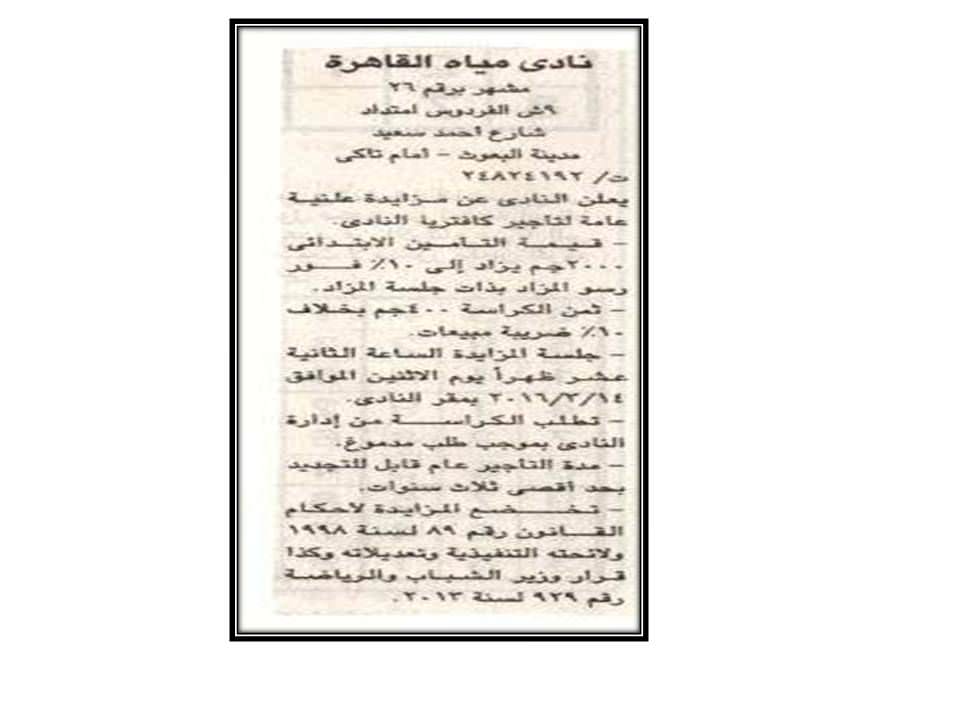 نادى مياه القاهرة
مشهر برقم ٢٦
٩ش الفردوس امتداد
شارع أحمد سعيد
مدينة البعوث - أمام تاكى
ت/ ٢٤٨٢٤١٩٢
يعلن النادى عن مزايدة علنية
عامة لتأجير كافتريا النادى.
- قيمة التأمين الابتدائى
٢٠٠٠جم يزاد إلى ١٠٪ فور
رسو المزاد بذات جلسة المزاد.
- ثمن الكراسة ٤٠٠جم بخلاف
١٠٪ ضريبة مبيعات.
- جلسة المزايدة الساعة الثانية
عشر ظهراً يوم الاثنين الموافق
٢٠١٦/٣/١٤ بمقر النادى.
- تطلب الكراسة من إدارة
النادى بموجب طلب مدموغ.
- مدة التأجير عام قابل للتجديد
بحد أقصى ثلاث سنوات.
- تخضع المزايدة لاحكام
القانون رقم ٨٩ لسنة ١٩٩٨
ولائحته التنفيذية وتعديلاته وكذا
قرار وزير الشباب والرياضة
رقم ٩٢٩ لسنة ٢٠١٣.